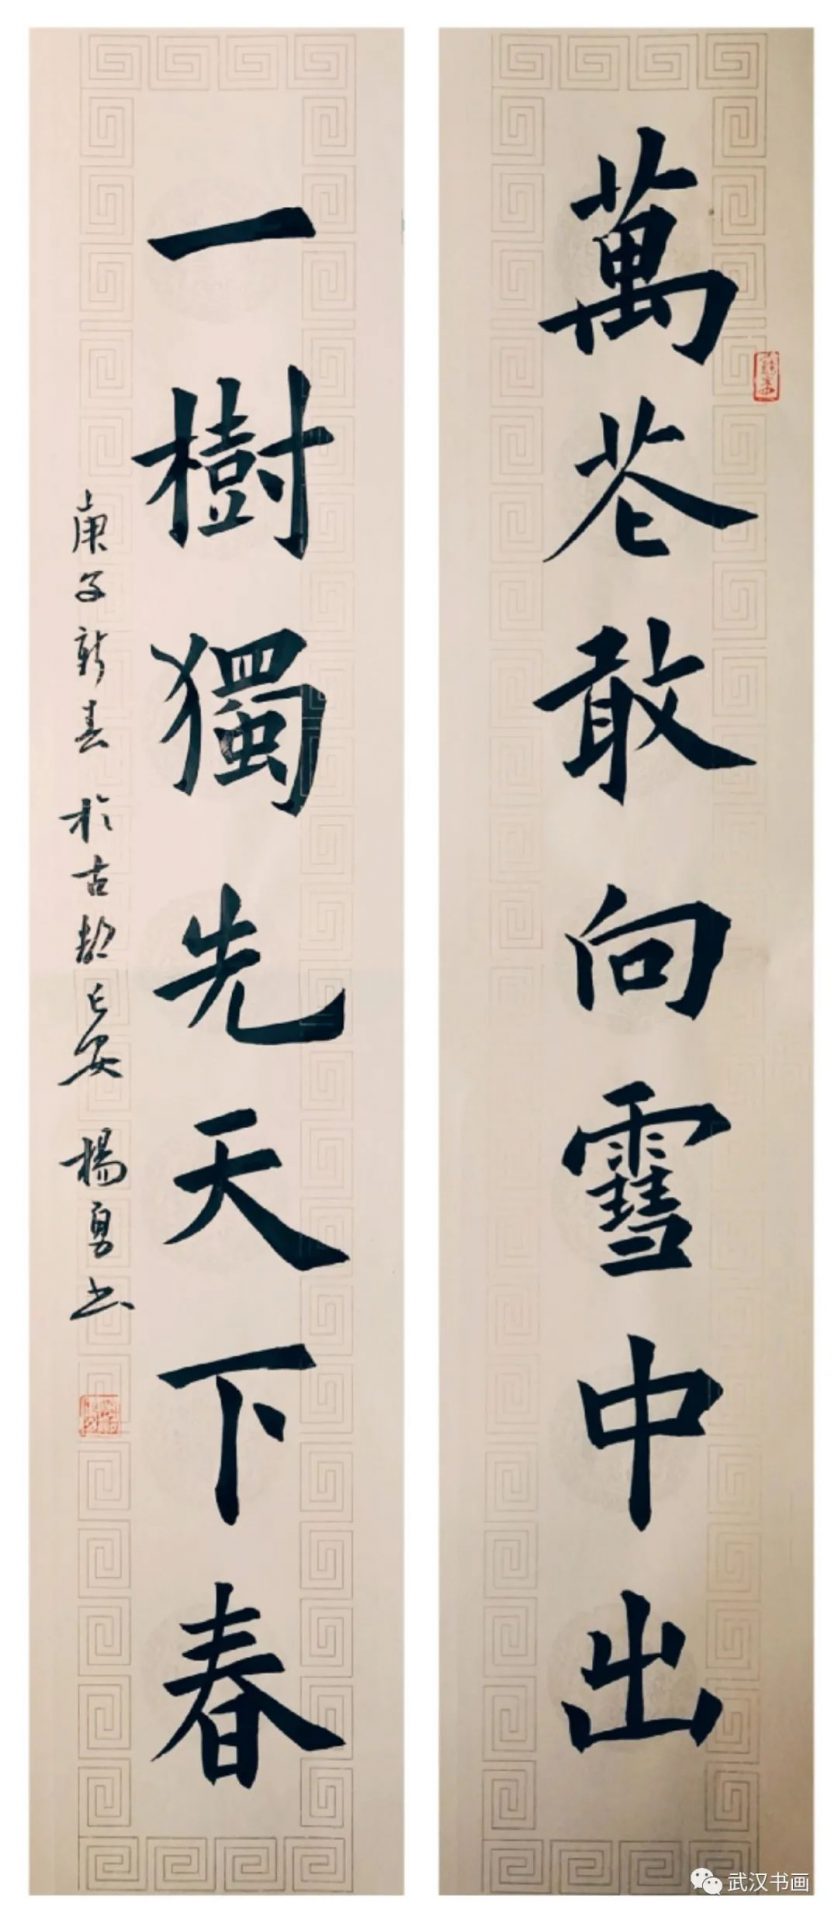 萬花敢向雪中出
一樹獨先天下春
庚子新春於古都長安楊勇書
武汉书画